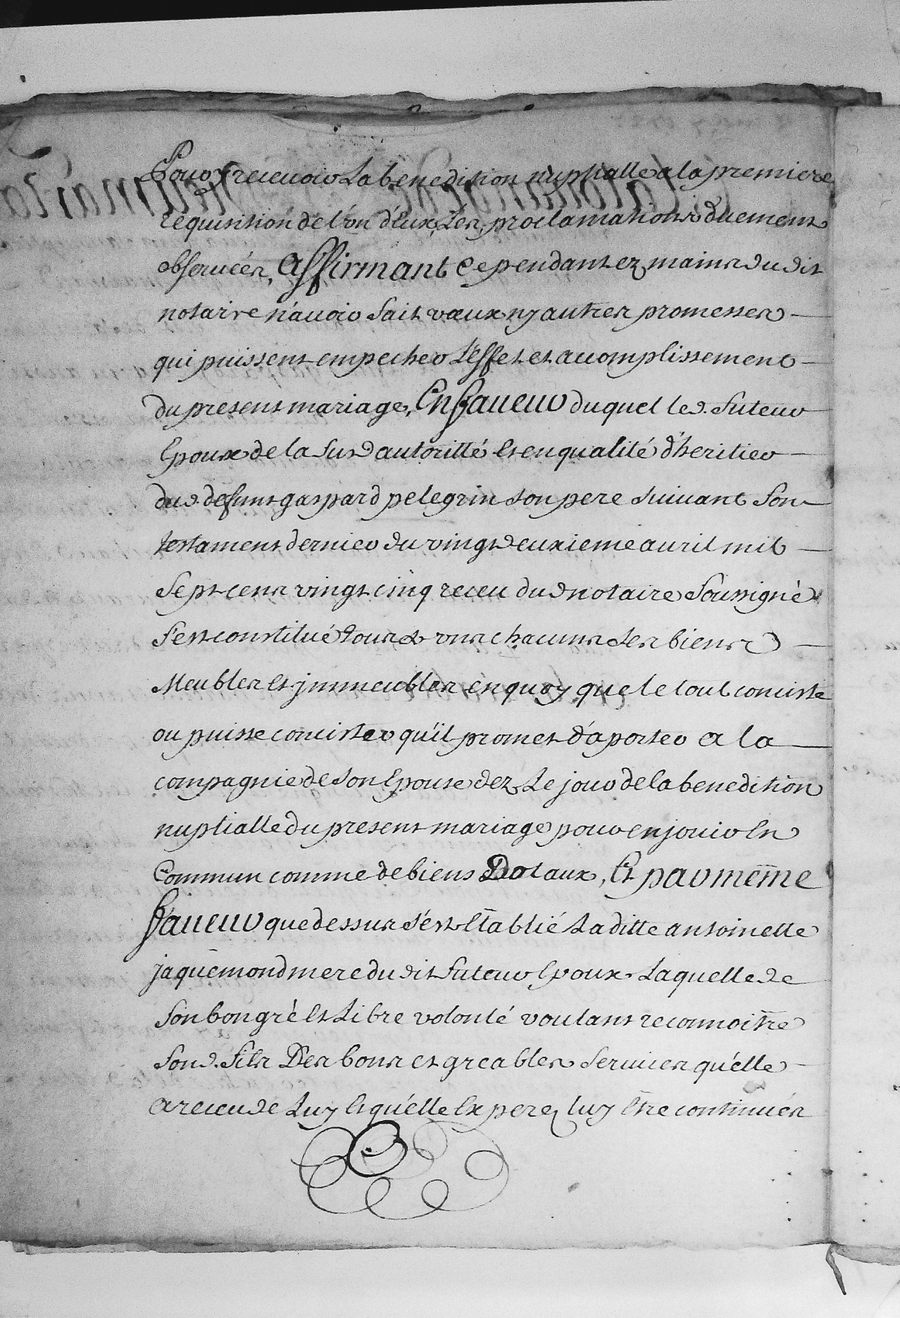 Pour y recevoir La benediction nuptialle a la premiere
requisition de l'un d'Eux, Les proclamations duement
observées, Affirmant Cependant ez mains du dit
notaire n'avoir fait vœux ny autres promesses
qui puissent empecher L'effet et acomplissement
du present mariage, En faveur duquel led. futeur
Epoux de la susd autorité Et en qualité d'heritier
dud defunt gaspard pelegrin son pere suivant son
testament dernier du vingt deuxieme avril mil
sept cens vingt cinq receu dud notaire soussigné
s'est constitué tous & uns chacuns ses biens
Meubles et immeubles en quoy que le tout conciste
ou puisse concister qu'il promet d'aporter a la
compagnie de son Epouse dez Le jour de la benediction
nuptialle du present mariage pour en jouir En
Commun comme de biens Dotaux, Et par meme
faveur que dessus s'est Etablie Laditte antoinette
jaquemond mere du dit futeur Epoux Laquelle de
son bon gré Et Libre volonté voulant reconnoitre
son d. fils Des bons et agreables services qu'elle
a receu de Luy Et qu'elle Espere luy Etre continués